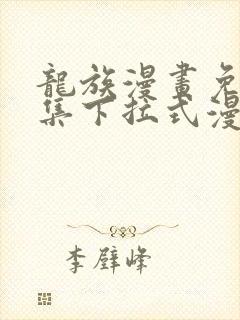 龍族漫畫免
集下拉式漫
李璧峰